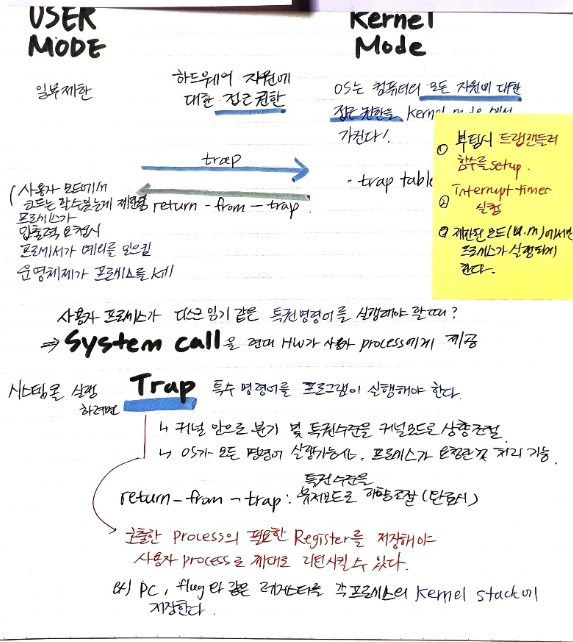 USER
MODE
Kernel
Mode
일부제한
하드웨어 자원에
대한 접근권한
OS는 컴퓨터의 모든 자원에 대한
접근 권한을 Kernel mode 에서
가진다!
trap
return - from - trap.
- trap table
사용자 모드에서
코드는 할 수 있는게 제한됨
프로세스가
입출력 요청시
프로세서가 예외를 일으킴
운영체제가 프로세스를
① 부팅시 트랩핸들러
함수를 setup.
② Interrupt timer
실행
③ 제한된 모드(U.M)에서만
프로세스가 실행되게
한다.
사용자 프로세스가 디스크 읽기 같은 특권명령어를 실행해야 할 때?
⇒ System call 을 현대 HW가 사용자 process에게 제공
시스템콜 실행
하려면
Trap 특수 명령어를 프로그램이 실행해야 한다.
↳ 커널 안으로 분기 및 특권수준을 커널모드로 상향조절
↳ OS가 모든 명령어 실행가능해, 프로세스가 요청한 것 처리 가능.
특권수준을
return - from - trap : 유저모드로 하향조절 (완료시)
호출한 process의 필요한 Register를 저장해야
사용자 process로 제대로 리턴시킬 수 있다.
PC, flag 와 같은 레지스터를 각 프로세스의 Kernel stack에
저장한다.